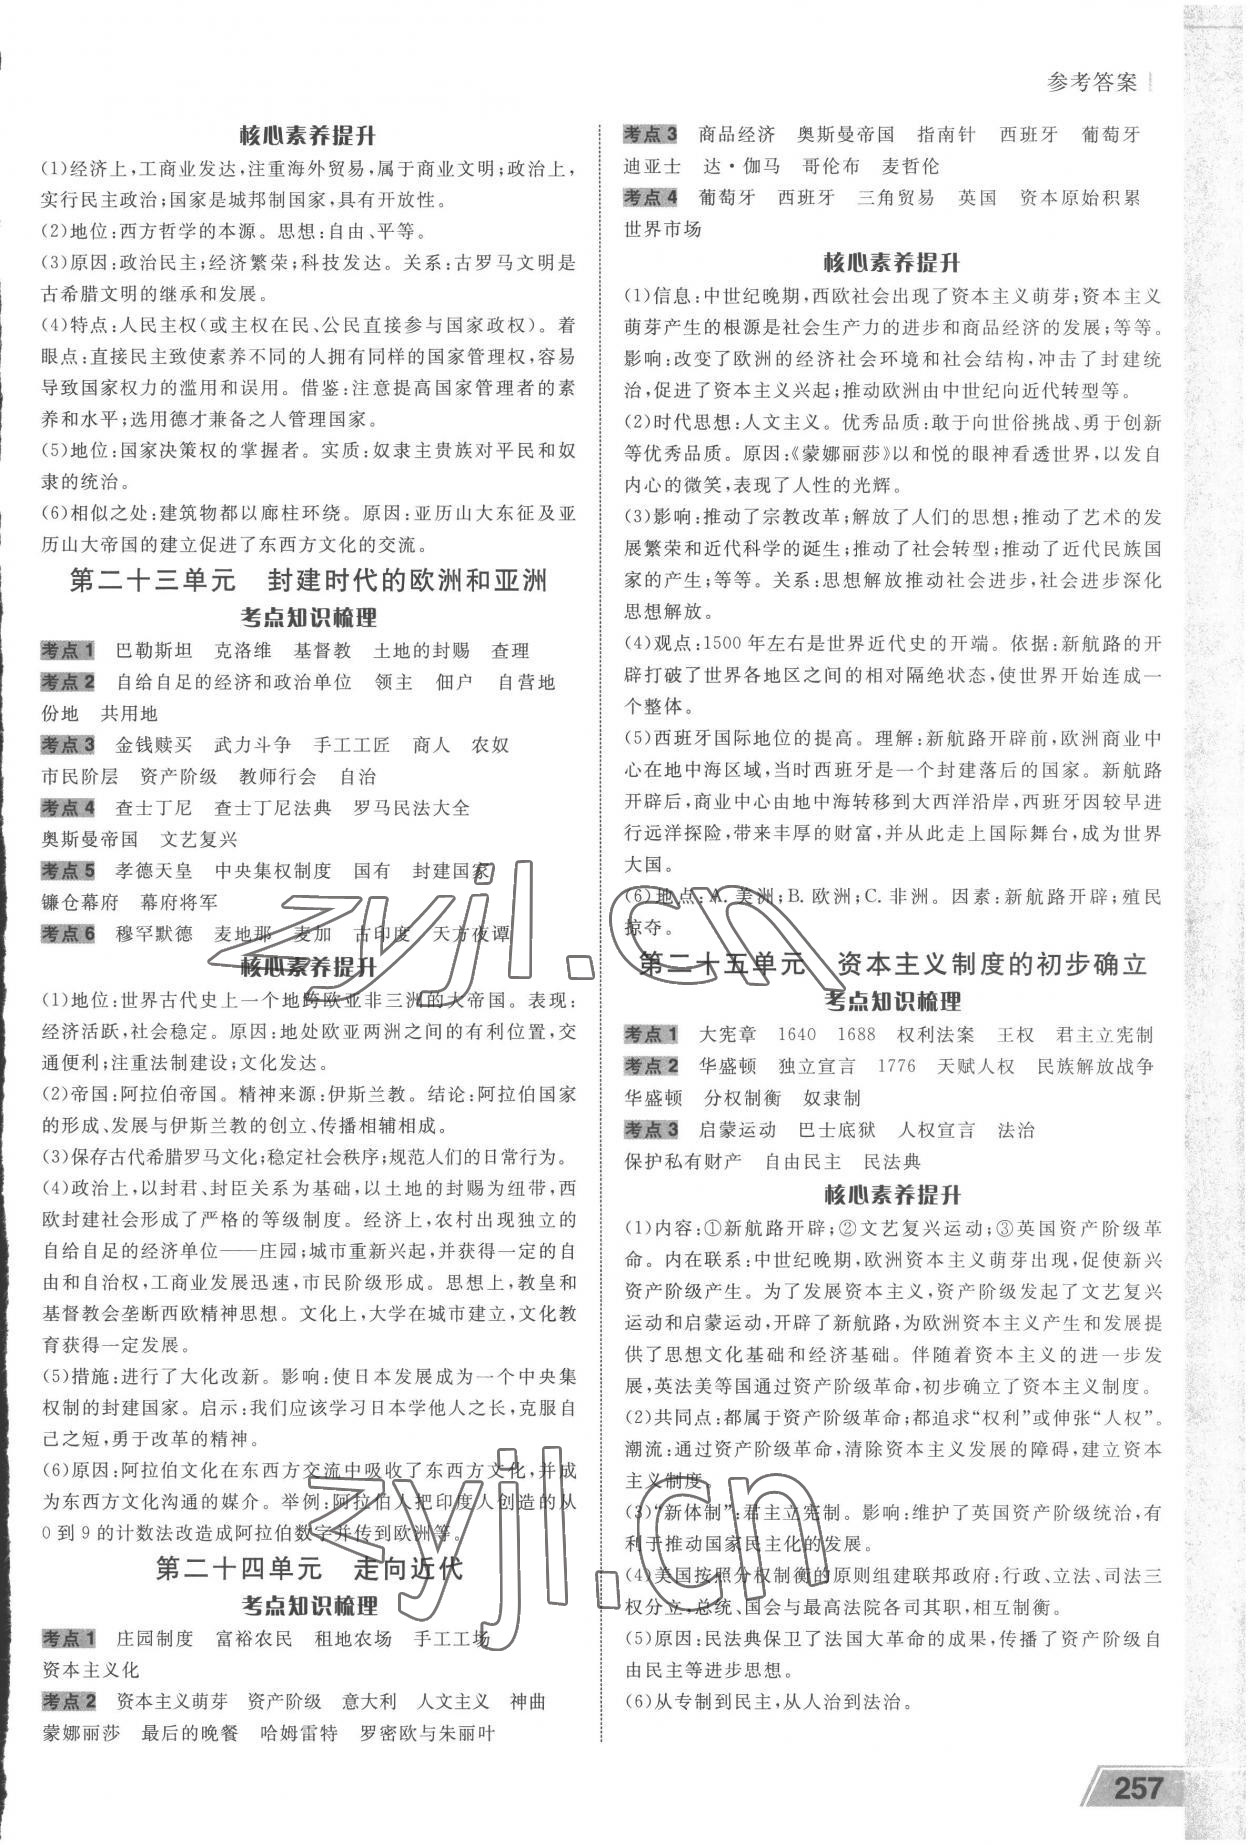 参考答案
核心素养提升
(1)经济上,工商业发达,注重海外贸易,属于商业文明;政治上,
实行民主政治;国家是城邦制国家,具有开放性。
(2)地位:西方哲学的本源。思想:自由、平等。
(3)原因:政治民主;经济繁荣;科技发达。关系:古罗马文明是
古希腊文明的继承和发展。
(4)特点:人民主权(或主权在民、公民直接参与国家政权)。着
眼点:直接民主致使素养不同的人拥有同样的国家管理权,容易
导致国家权力的滥用和误用。借鉴:注意提高国家管理者的素
养和水平;选用德才兼备之人管理国家。
(5)地位:国家决策权的掌握者。实质:奴隶主贵族对平民和奴
隶的统治。
(6)相似之处:建筑物都以廊柱环绕。原因:亚历山大东征及亚
历山大帝国的建立促进了东西方文化的交流。
第二十三单元 封建时代的欧洲和亚洲
考点知识梳理
考点1 巴勒斯坦 克洛维 基督教 土地的封赐 查理
考点2 自给自足的经济和政治单位 领主 佃户 自营地
份地 共用地
考点3 金钱赎买 武力斗争 手工工匠 商人 农奴
市民阶层 资产阶级 教师行会 自治
考点4 查士丁尼 查士丁尼法典 罗马民法大全
奥斯曼帝国 文艺复兴
考点5 孝德天皇 中央集权制度 国有 封建国家
镰仓幕府 幕府将军
考点6 穆罕默德 麦地那 麦加 古印度 天方夜谭
核心素养提升
(1)地位:世界古代史上一个地跨欧亚非三洲的大帝国。表现:
经济活跃,社会稳定。原因:地处欧亚两洲之间的有利位置,交
通便利;注重法制建设;文化发达。
(2)帝国:阿拉伯帝国。精神来源:伊斯兰教。结论:阿拉伯国家
的形成、发展与伊斯兰教的创立、传播相辅相成。
(3)保存古代希腊罗马文化;稳定社会秩序;规范人们的日常行为。
(4)政治上,以封君、封臣关系为基础,以土地的封赐为纽带,西
欧封建社会形成了严格的等级制度。经济上,农村出现独立的
自给自足的经济单位——庄园;城市重新兴起,并获得一定的自
由和自治权,工商业发展迅速,市民阶级形成。思想上,教皇和
基督教会垄断西欧精神思想。文化上,大学在城市建立,文化教
育获得一定发展。
(5)措施:进行了大化改新。影响:使日本发展成为一个中央集
权制的封建国家。启示:我们应该学习日本学他人之长,克服自
己之短,勇于改革的精神。
(6)原因:阿拉伯文化在东西方交流中吸收了东西方文化,并成
为东西方文化沟通的媒介。举例:阿拉伯人把印度人创造的从
0到9的计数法改造成阿拉伯数字并传到欧洲等。
第二十四单元 走向近代
考点知识梳理
考点1 庄园制度 富裕农民 租地农场 手工工场
资本主义化
考点2 资本主义萌芽 资产阶级 意大利 人文主义 神曲
蒙娜丽莎 最后的晚餐 哈姆雷特 罗密欧与朱丽叶
考点3 商品经济 奥斯曼帝国 指南针 西班牙 葡萄牙
迪亚士 达·伽马 哥伦布 麦哲伦
考点4 葡萄牙 西班牙 三角贸易 英国 资本原始积累
世界市场
核心素养提升
(1)信息:中世纪晚期,西欧社会出现了资本主义萌芽;资本主义
萌芽产生的根源是社会生产力的进步和商品经济的发展;等等。
影响:改变了欧洲的经济社会环境和社会结构,冲击了封建统
治,促进了资本主义兴起;推动欧洲由中世纪向近代转型等。
(2)时代思想:人文主义。优秀品质:敢于向世俗挑战、勇于创新
等优秀品质。原因:《蒙娜丽莎》以和悦的眼神看透世界,以发自
内心的微笑,表现了人性的光辉。
(3)影响:推动了宗教改革;解放了人们的思想;推动了艺术的发
展繁荣和近代科学的诞生;推动了社会转型;推动了近代民族国
家的产生;等等。关系:思想解放推动社会进步,社会进步深化
思想解放。
(4)观点:1500年左右是世界近代史的开端。依据:新航路的开
辟打破了世界各地区之间的相对隔绝状态,使世界开始连成一
个整体。
(5)西班牙国际地位的提高。理解:新航路开辟前,欧洲商业中
心在地中海区域,当时西班牙是一个封建落后的国家。新航路
开辟后,商业中心由地中海转移到大西洋沿岸,西班牙因较早进
行远洋探险,带来丰厚的财富,并从此走上国际舞台,成为世界
大国。
(6)地点:A.美洲;B.欧洲;C.非洲。因素:新航路开辟;殖民
掠夺。
第二十五单元 资本主义制度的初步确立
考点知识梳理
考点1 大宪章 1640 1688 权利法案 王权 君主立宪制
考点2 华盛顿 独立宣言 1776 天赋人权 民族解放战争
华盛顿 分权制衡 奴隶制
考点3 启蒙运动 巴士底狱 人权宣言 法治
保护私有财产 自由民主 民法典
核心素养提升
(1)内容:①新航路开辟;②文艺复兴运动;③英国资产阶级革
命。内在联系:中世纪晚期,欧洲资本主义萌芽出现,促使新兴
资产阶级产生。为了发展资本主义,资产阶级发起了文艺复兴
运动和启蒙运动,开辟了新航路,为欧洲资本主义产生和发展提
供了思想文化基础和经济基础。伴随着资本主义的进一步发
展,英法美等国通过资产阶级革命,初步确立了资本主义制度。
(2)共同点:都属于资产阶级革命;都追求“权利”或伸张“人权”。
潮流:通过资产阶级革命,清除资本主义发展的障碍,建立资本
主义制度。
(3)“新体制”:君主立宪制。影响:维护了英国资产阶级统治,有
利于推动国家民主化的发展。
(4)美国按照分权制衡的原则组建联邦政府;行政、立法、司法三
权分立,总统、国会与最高法院各司其职,相互制衡。
(5)原因:民法典保卫了法国大革命的成果,传播了资产阶级自
由民主等进步思想。
(6)从专制到民主,从人治到法治。
zyjl.cn
zyjl.cn
257